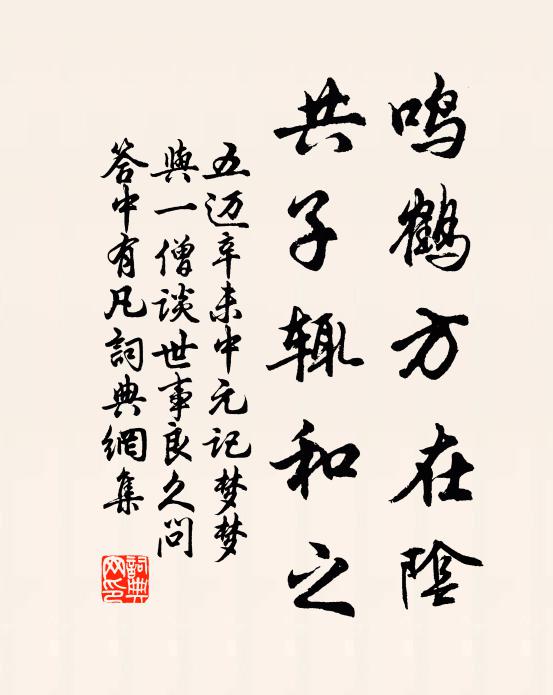 鸣鹤方在陰
共子辄和之
五迈辛未中元记梦梦
與一僧談世事良久问
答中有凡詞典網集
詞典网印